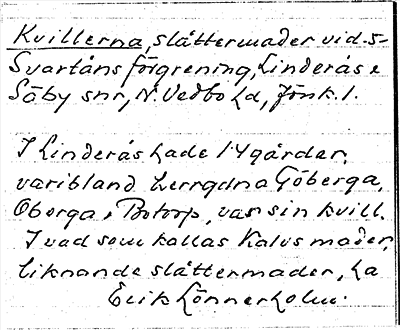 Kvillerna, slåttermader vid S-
Svartåns förgrening, Linderås &
Säby snr, N. Vedbo hd, Jönk. l.
I Linderås hade 14 gårder,
varibland herrgdna Göberga,
Oberga & Botorp, var sin kvill.
I vad som kallas Kalvs mader,
liknande slåttermader, ha
Erik Lönnerholm.